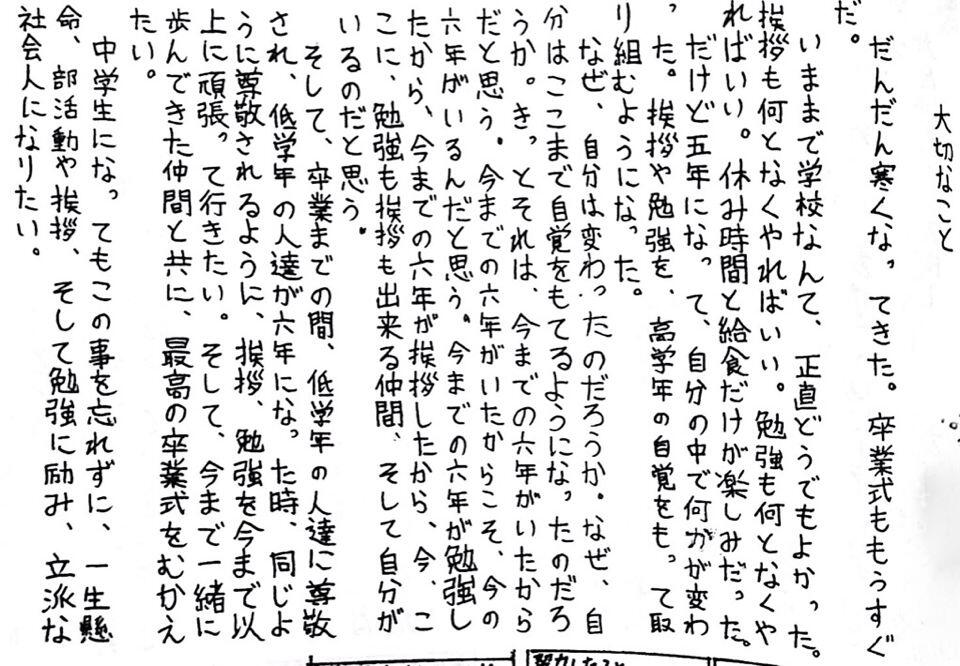 大切なこと
だんだん寒くなってきた。卒業式ももうすぐ
だ。
いままで学校なんて、正直どうでもよかった。
挨拶も何となくやればいい。勉強も何となくや
ればいい。休み時間と給食だけが楽しみだった。
だけど五年になって、自分の中で何かが変わ
った。挨拶や勉強を、高学年の自覚をもって取
り組むようになった。
なぜ、自分は変わったのだろうか。なぜ、自
分はここまで自覚をもてるようになったのだろ
うか。きっとそれは、今までの六年がいたから
だと思う。今までの六年がいたからこそ、今の
六年がいるんだと思う。今までの六年が勉強し
たから、今までの六年が挨拶したから、今、こ
こに、勉強も挨拶も出来る仲間、そして自分が
いるのだと思う。
そして、卒業までの間、低学年の人達に尊敬
され、低学年の人達が六年になった時、同じよ
うに尊敬されるように、挨拶、勉強を今まで以
上に頑張って行きたい。そして、今まで一緒に
歩んできた仲間と共に、最高の卒業式をむかえ
たい。
中学生になってもこの事を忘れずに、一生懸
命、部活動や挨拶、そして勉強に励み、立派な
社会人になりたい。